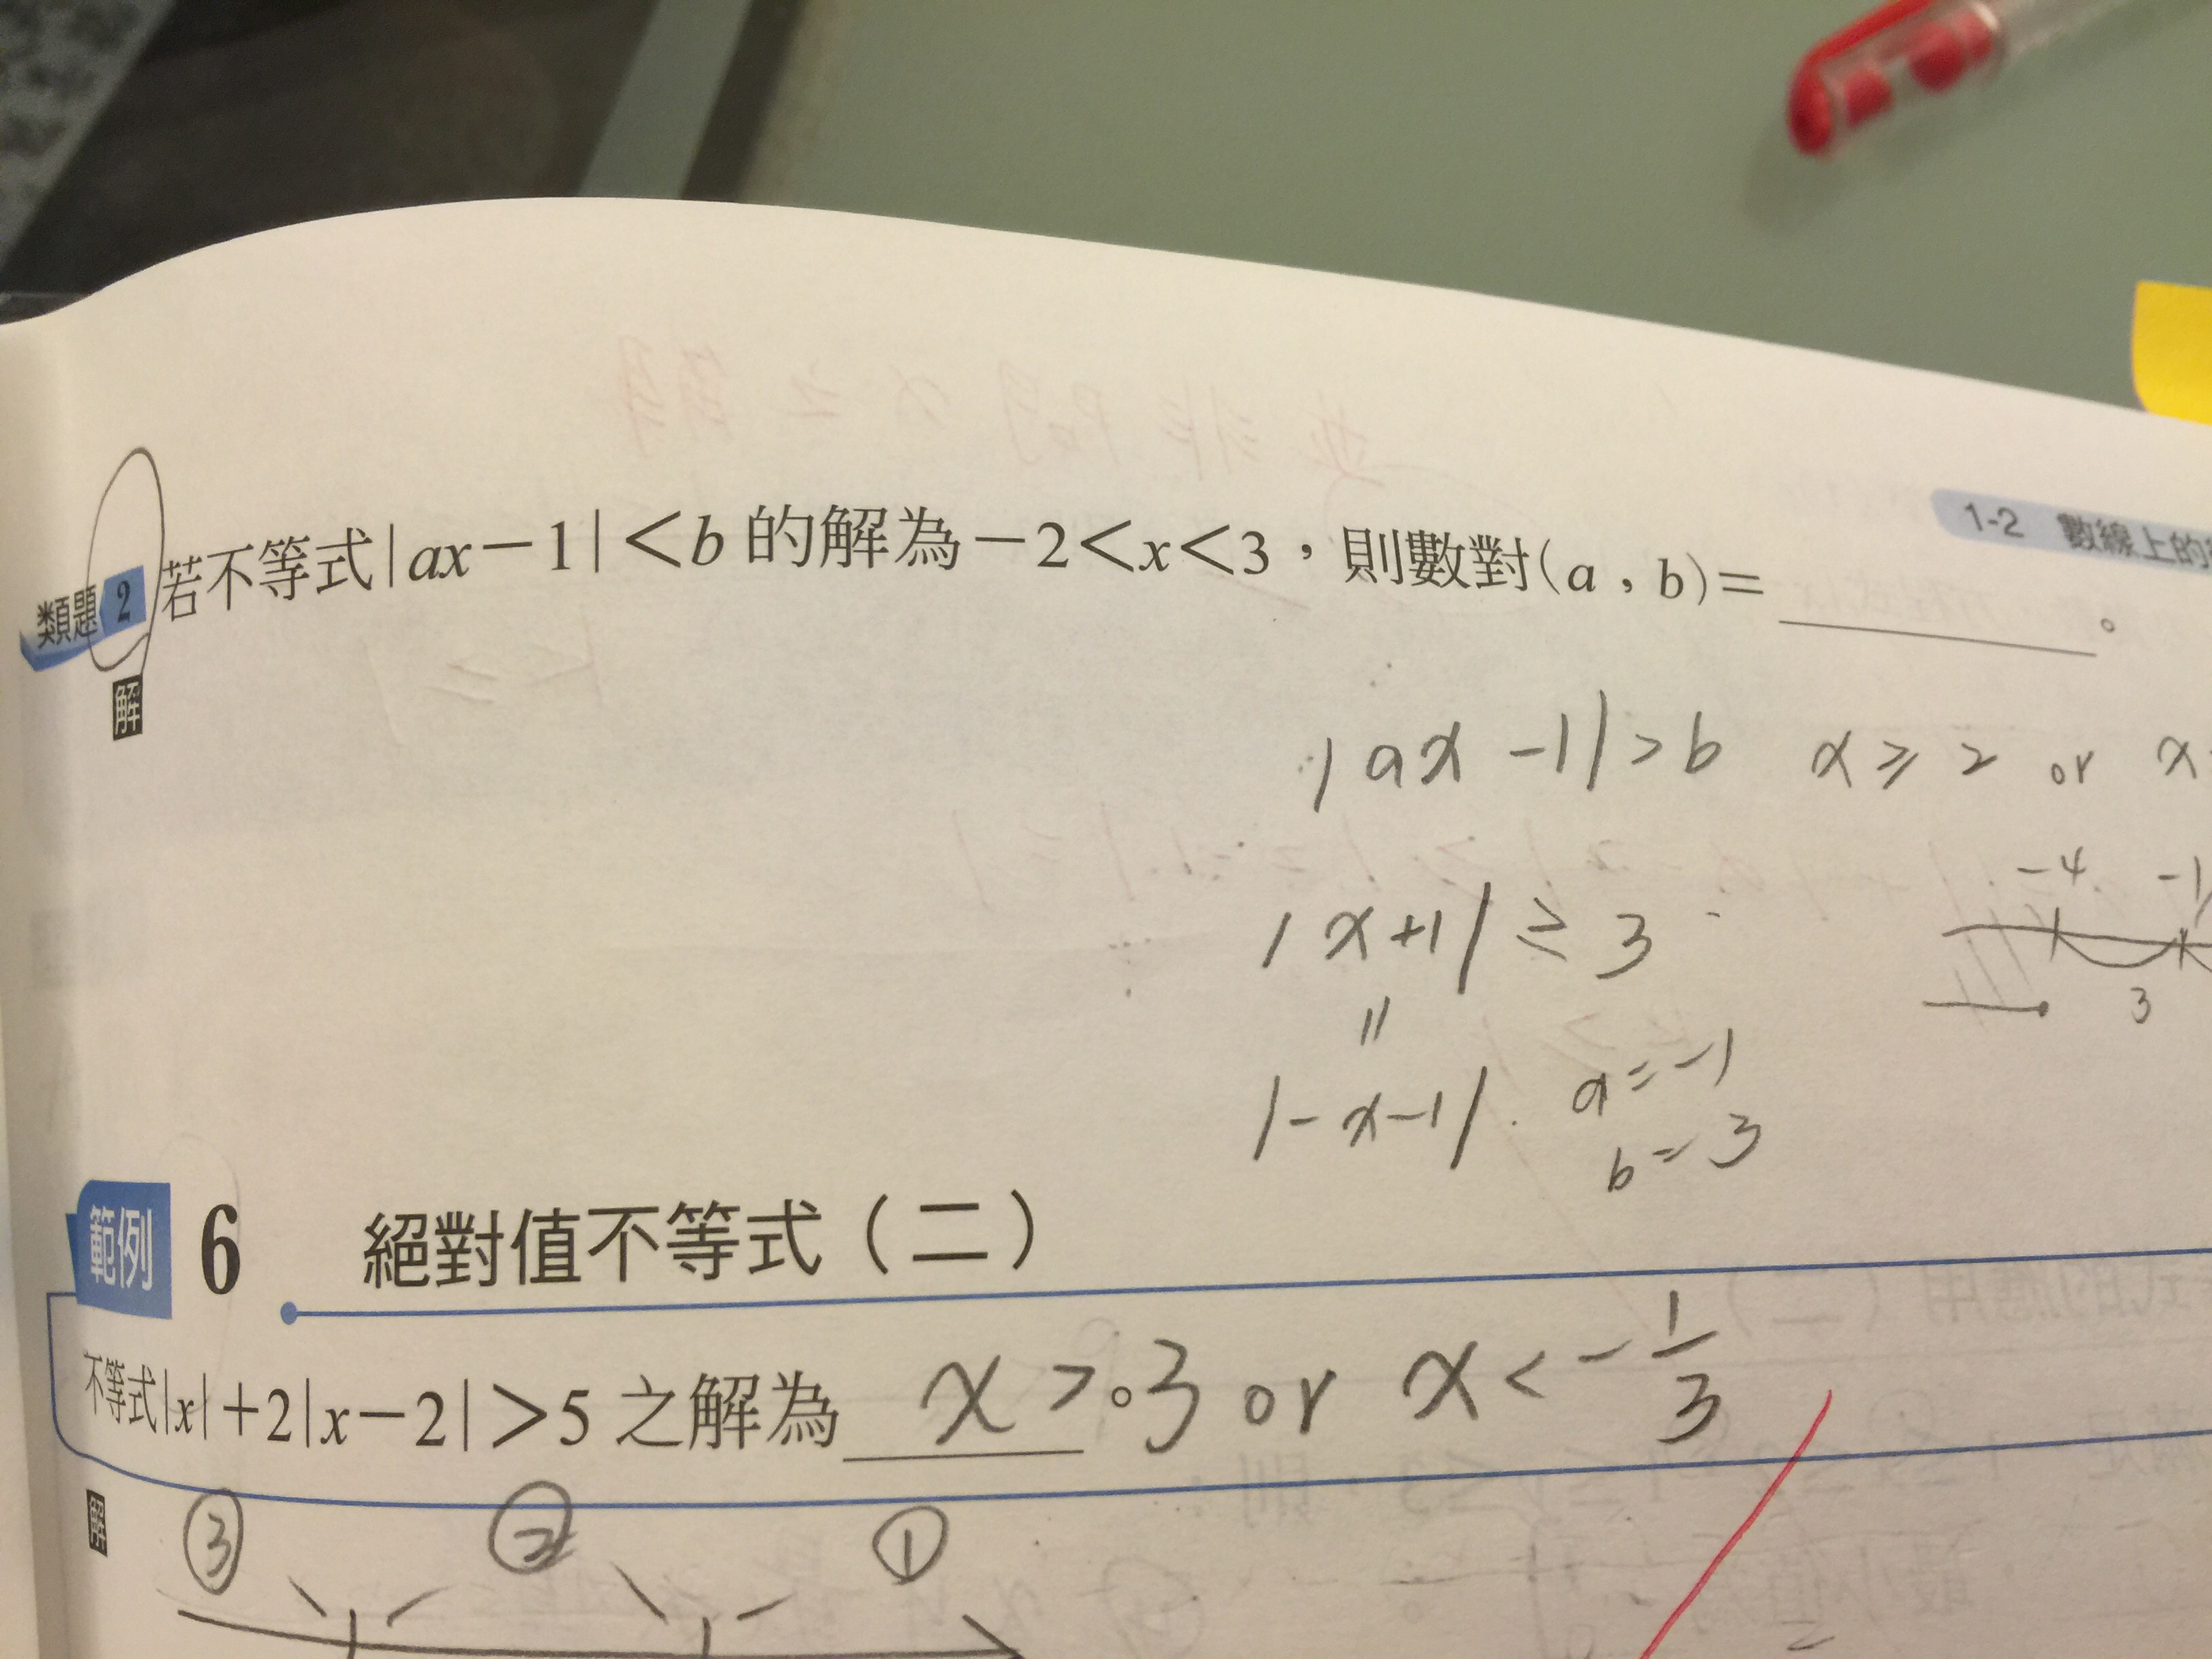 1-2 數線上的
類題 2 若不等式|ax−1|<b 的解為−2<x<3，則數對(a，b)=______。
解
|ax-1|>b x≥2 or x
-4 -1
|x+1|≥3
3
||
|-x-1|. a=-1
b=3
範例 6 絕對值不等式（二）
不等式|x|+2|x−2|>5 之解為 x>3 or x<-1/3 。
解
③ ② ①